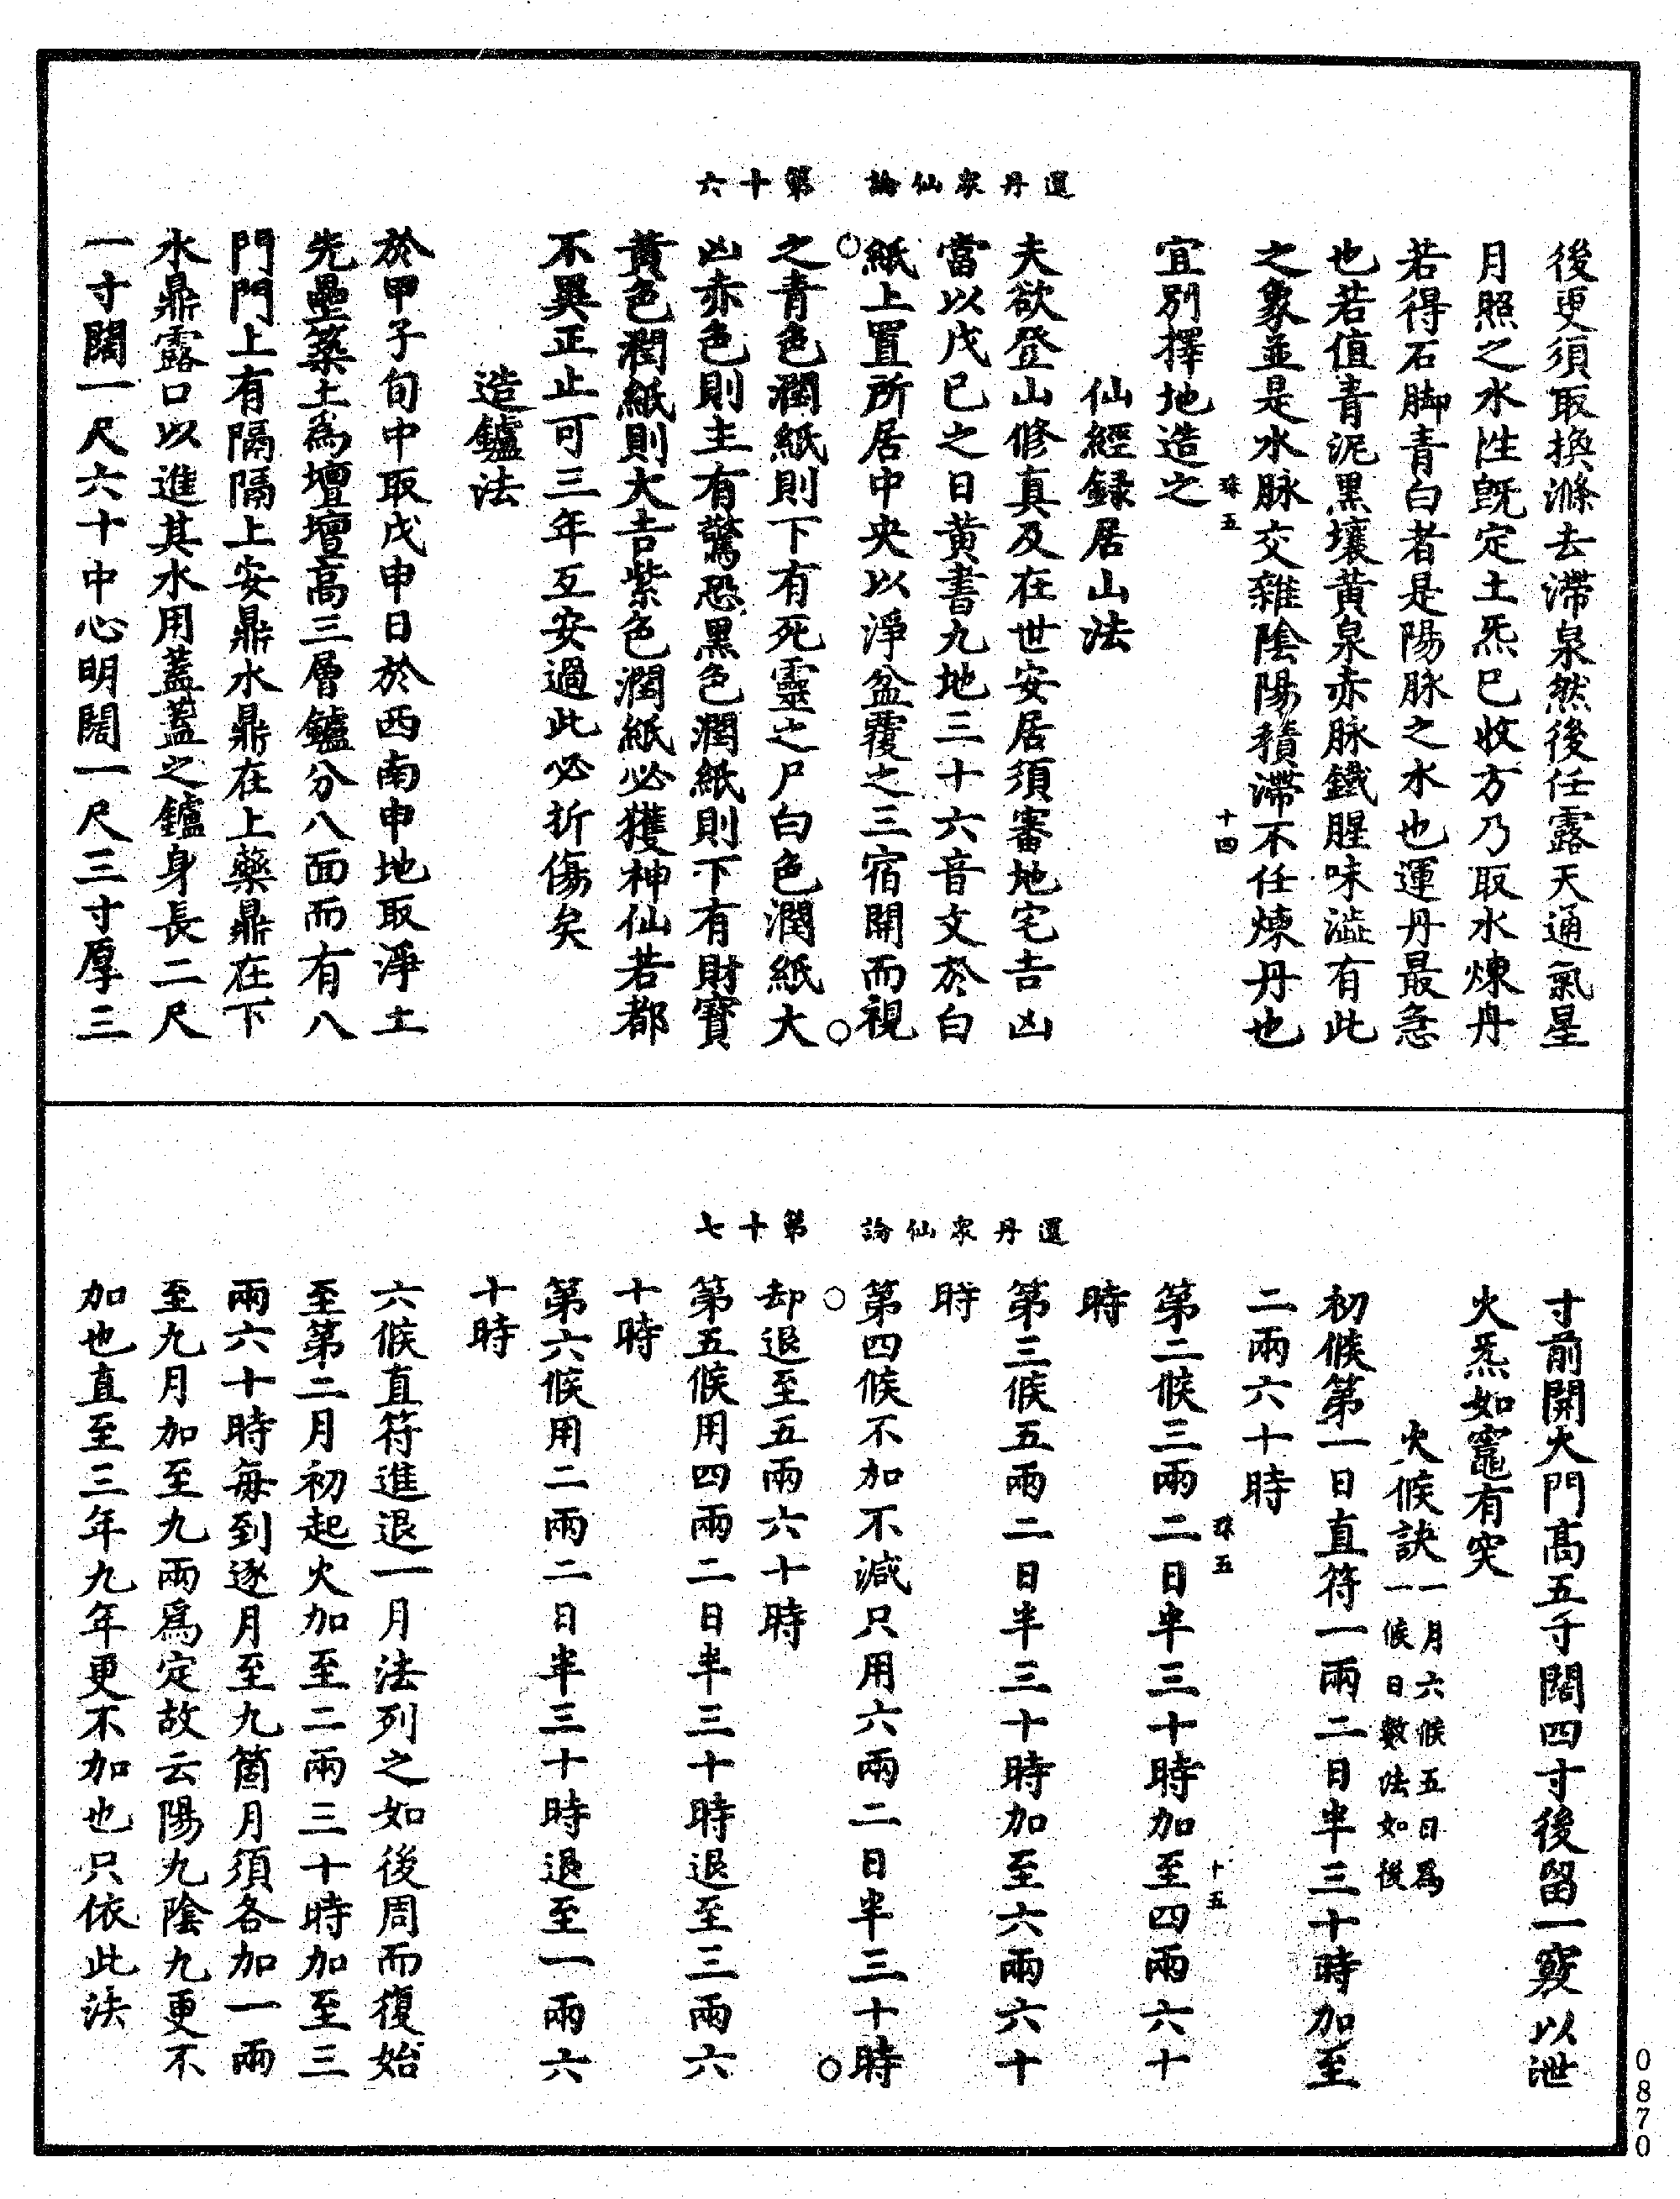 還丹衆仙論　第十六
後更須取換滌去滯泉然後任露天通氣星
月照之水性旣定土炁巳收方乃取水煉丹
若得石脚青白者是陽脉之水也運丹最急
也若值青泥黑壤黄泉赤脉鐵腥味澁有此
之象並是水脉交雜陰陽積滯不任煉丹也
珠五　十四
宜別擇地造之
仙經録居山法
夫欲登山修真及在世安居須審地宅吉凶
當以戊巳之日黄書九地三十六音文於白
紙上置所居中央以淨盆覆之三宿開而視
之青色潤紙則下有死靈之尸白色潤紙大
凶赤色則主有驚恐黑色潤紙則下有財寳
黄色潤紙則大吉紫色潤紙必獲神仙若都
不異正止可三年互安過此必折傷矣
造鑪法
於甲子旬中取戊申日於西南申地取淨土
先壘築土爲壇壇高三層鑪分八面而有八
門門上有隔隔上安鼎水鼎在上藥鼎在下
水鼎露口以進其水用蓋蓋之鑪身長二尺
一寸闊一尺六十中心明闊一尺三寸厚三
還丹衆仙論　第十七
寸前開大門高五寸闊四寸後留一竅以泄
火炁如竈有突
火候訣一月六候五日爲一候日數法如後
初候第一日直符一兩二日半三十時加至
二兩六十時
珠五　十五
第二候三兩二日半三十時加至四兩六十
時
第三候五兩二日半三十時加至六兩六十
時
第四候不加不減只用六兩二日半三十時
却退至五兩六十時
第五候用四兩二日半三十時退至三兩六
十時
第六候用二兩二日半三十時退至一兩六
十時
六候直符進退一月法列之如後周而復始
至第二月初起火加至二兩三十時加至三
兩六十時每到逐月至九箇月須各加一兩
至九月加至九兩爲定故云陽九陰九更不
加也直至三年九年更不加也只依此法
0870